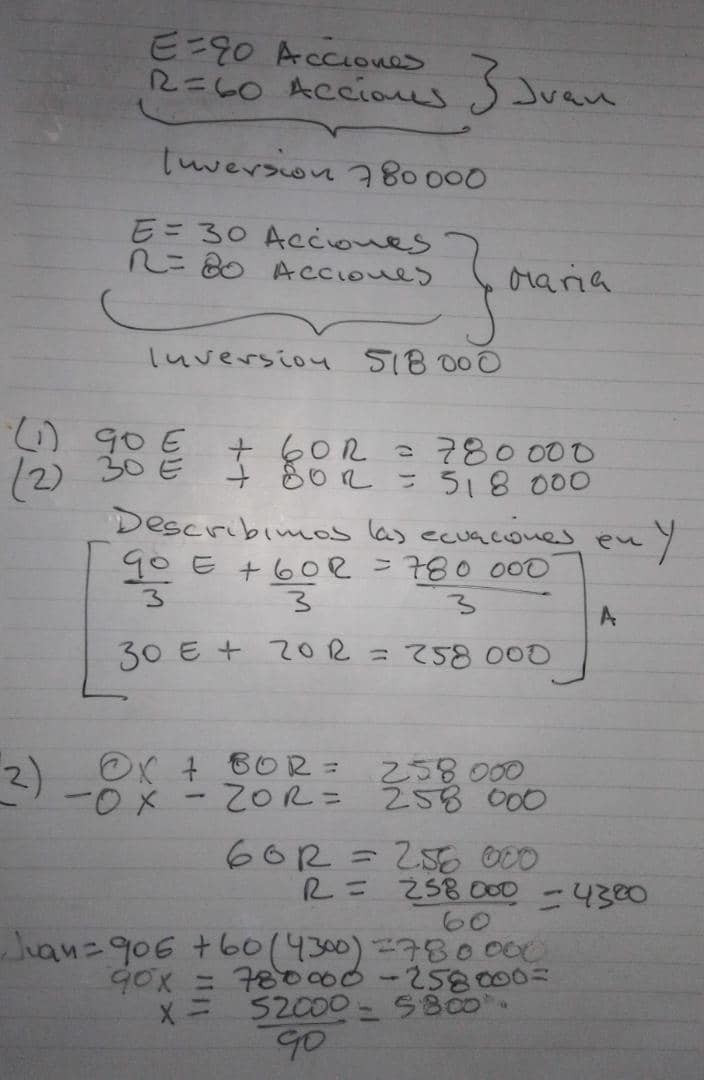 E = 90 Acciones
R = 60 Acciones } Juan
Inversion 780000
E = 30 Acciones
R = 80 Acciones } Maria
Inversion 518 000
(1) 90 E + 60 R = 780 000
(2) 30 E + 80 R = 518 000
Describimos las ecuaciones en y
90/3 E + 60R/3 = 780 000/3
A
30 E + 20 R = 258 000
2) 0x + 80R = 258 000
-0x - 20R = 258 000
60R = 256 000
R = 258 000/60 = 4300
Juan = 90E + 60(4300) = 780 000
90x = 780000 - 258000 =
x = 52000/90 = 5800